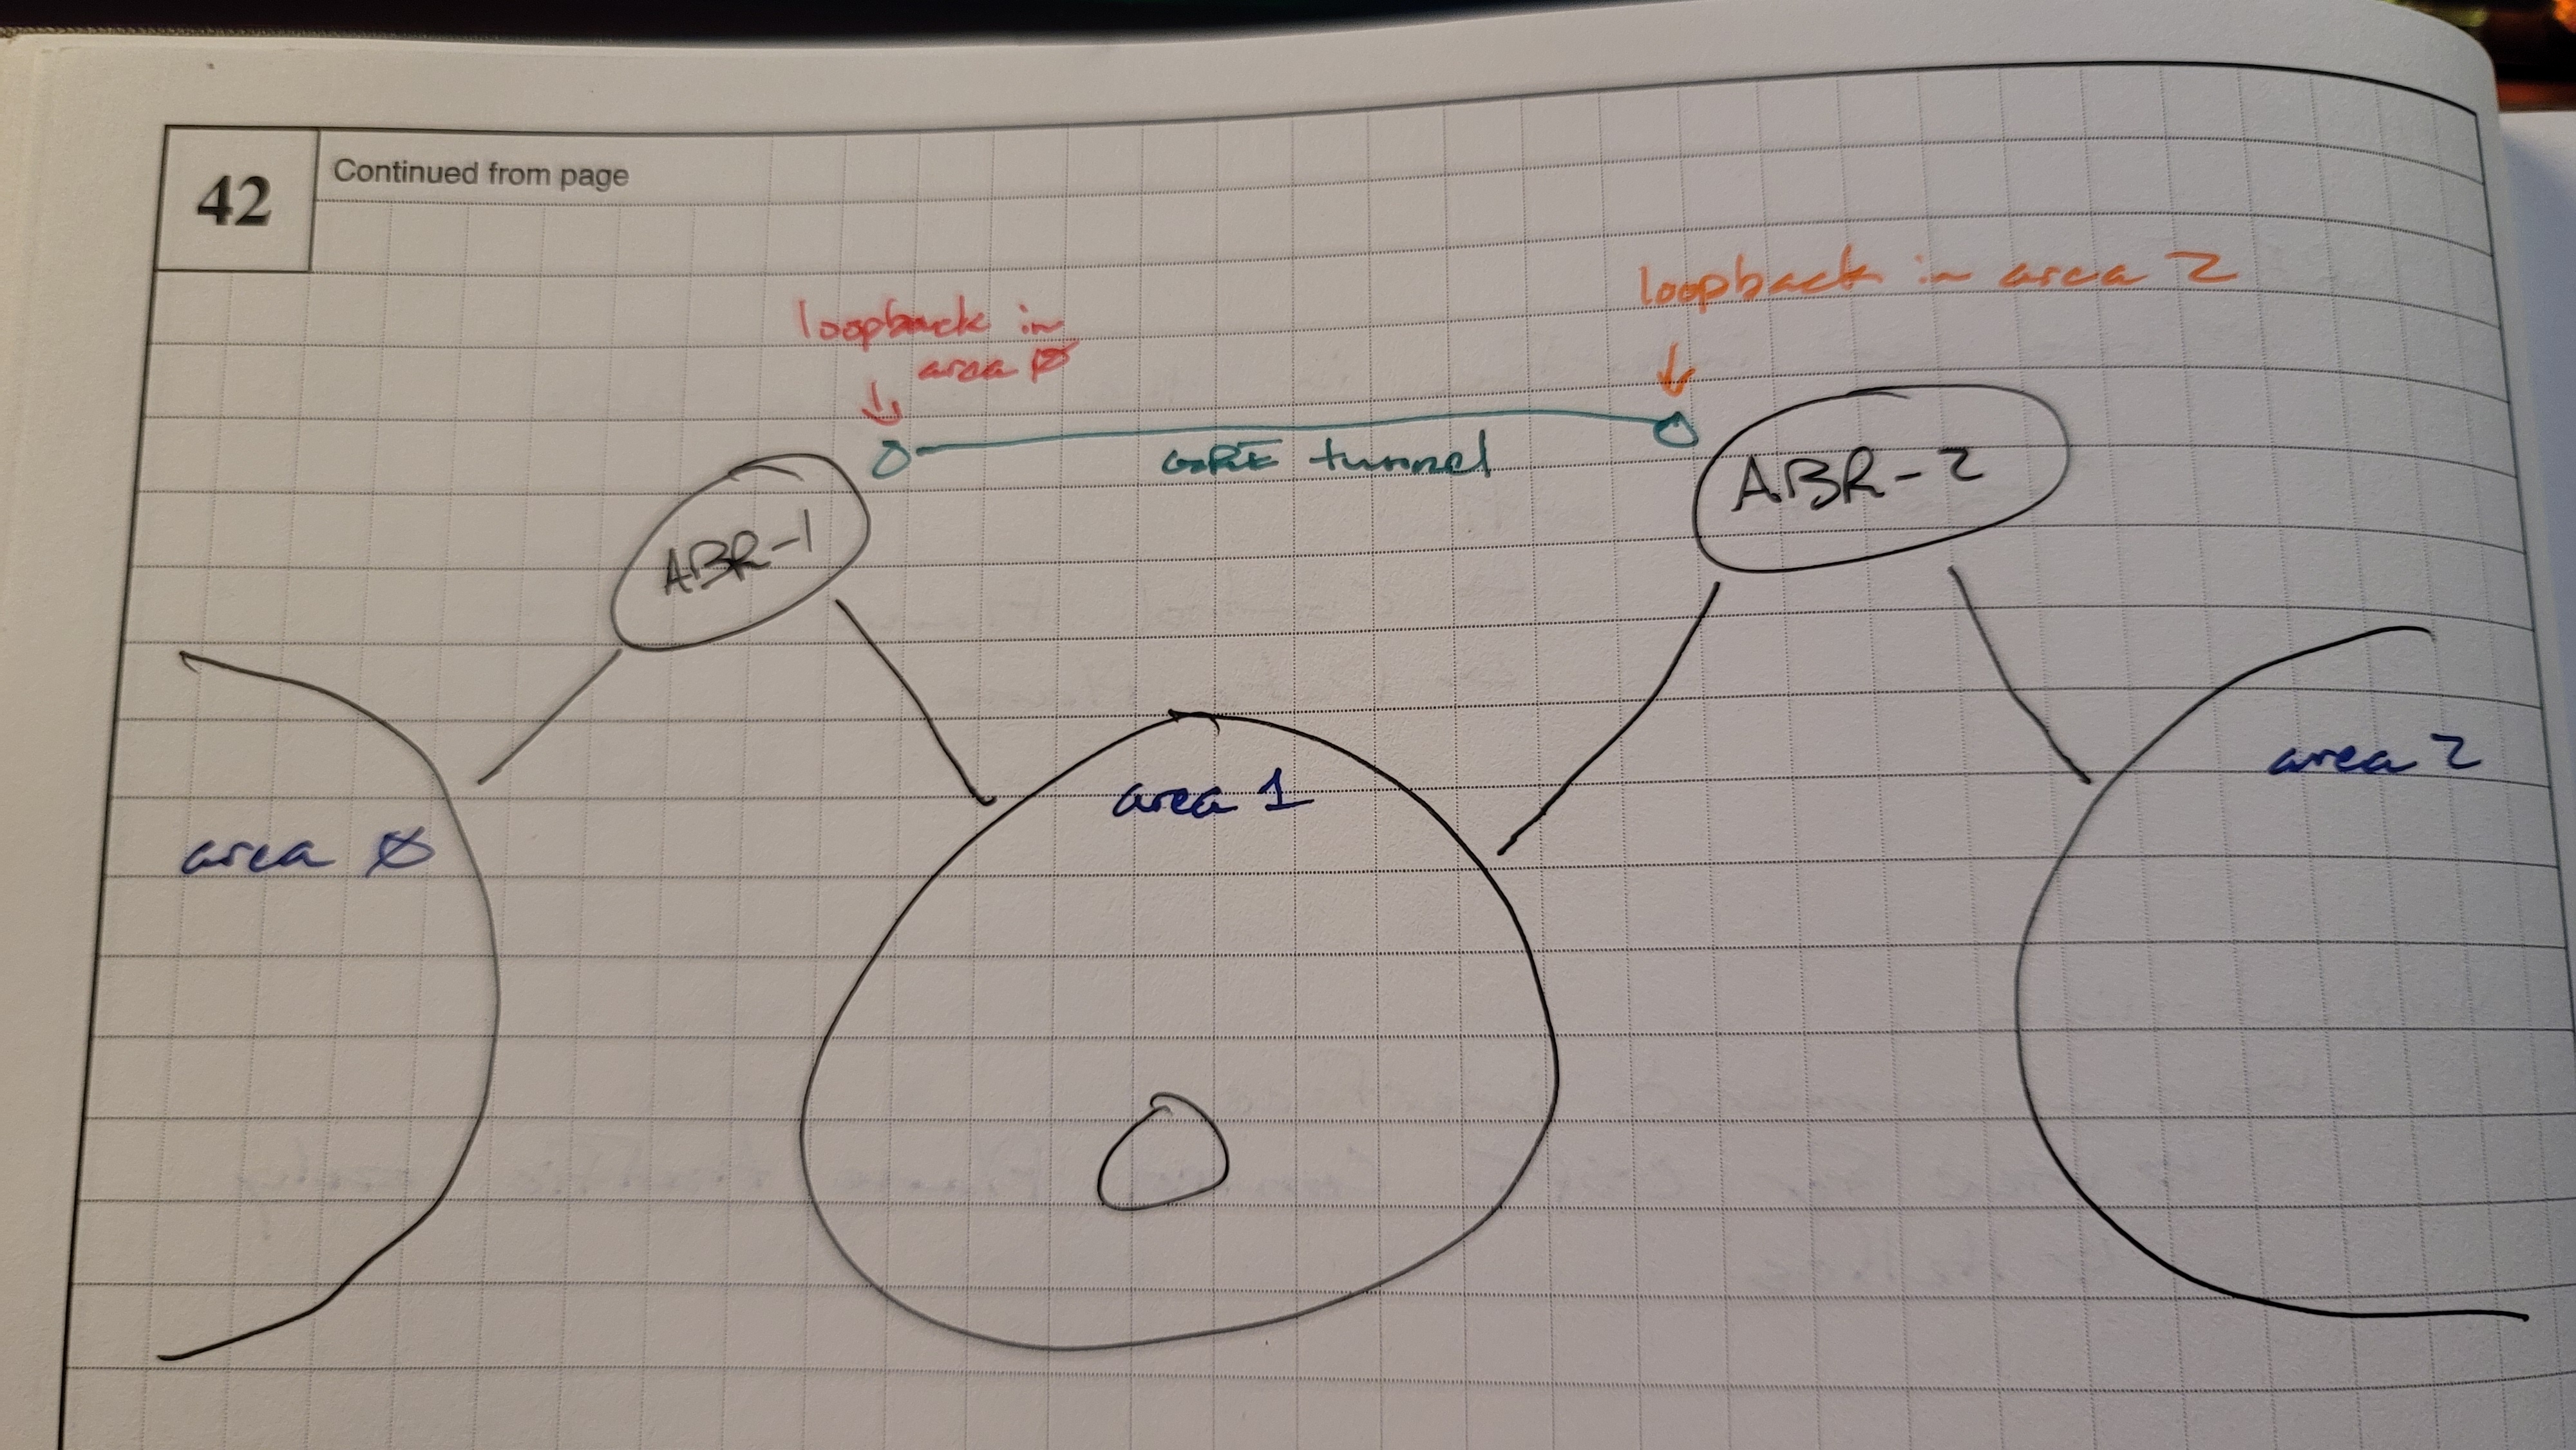 42
Continued from page
loopback in
area Ø
loopback in area 2
GRE tunnel
ABR-1
ABR-2
area Ø
area 1
area 2